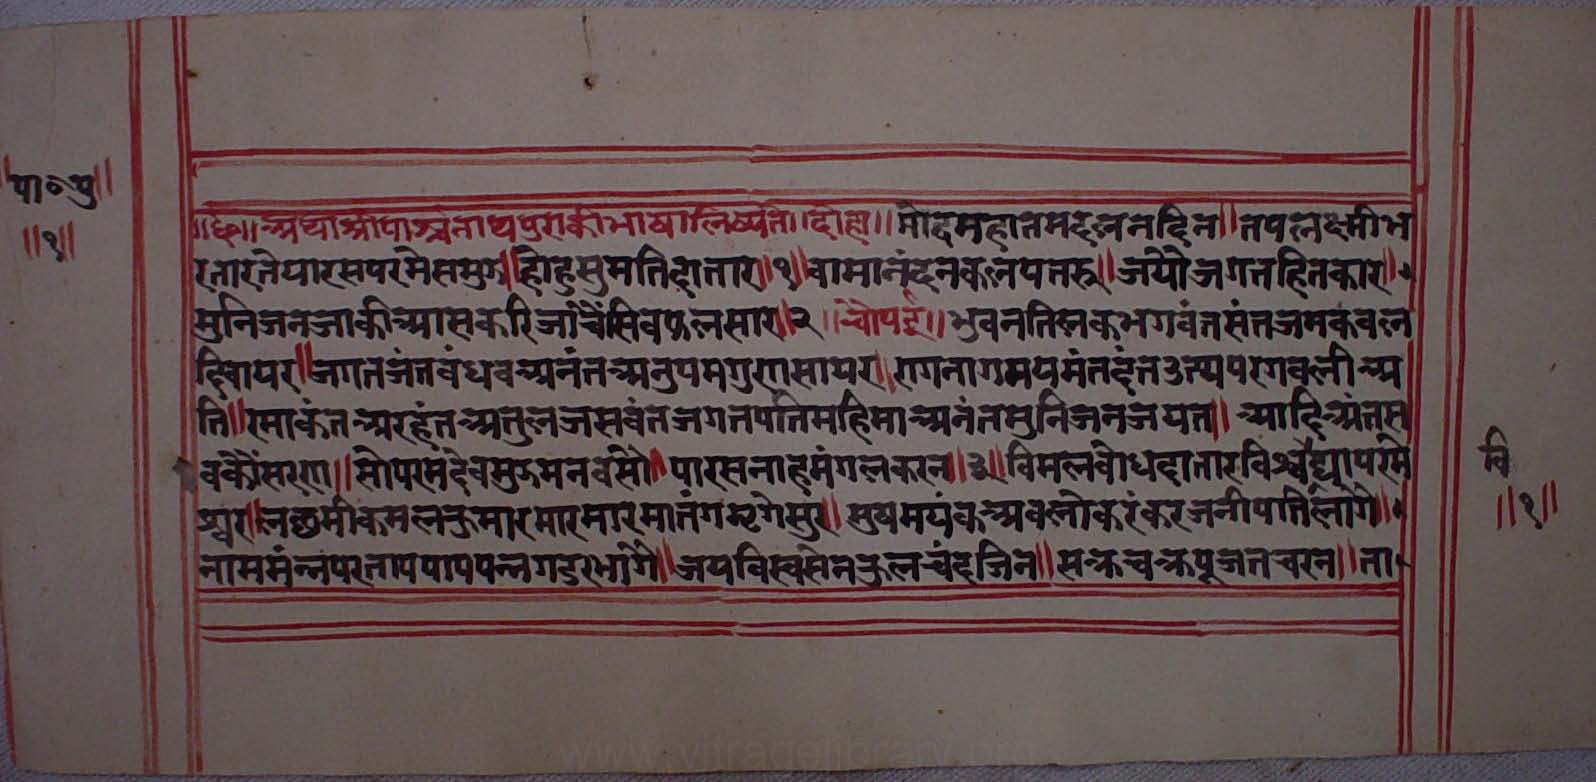 पा॰पु
॥१॥
॥छ॥ अथ श्रीपार्श्वनाथपुराणकी भाषा लिष्यते॥ दोहा॥ मोहमहातमदलनदिन॥ तपलक्ष्मीभ
रतार तेपारसपरमेसमुझ॥ होहुसुमतिदातार॥१॥ वामानंदनकलपतरू॥ जयौजगतहितकार॥
मुनिजनजाकीआसकरिजांचैंसिवफलसार॥२॥ चौपई॥ भुवनतिलकभगवंतसंतजनकवल
दिवायर॥ जगतजंतबंधवअनंतअनुपमगुरासायर॥ रागनागमयमंतदंतउत्थपरगवलीअ
ति॥ रमाकंतअरहंतअतुलजसवंतजगतपतिमहिमाअनंतमुनिजनजयत॥ आदिअंतस
वकौंसररा॥ सोपरमदेवमुझमनवसौ॥ पारसनाहमंगलकरन॥३॥ विमलबोधदातारविश्वद्यापरमे
श्वर॥ लछमीकमलकुमारमारमारमातंगमृगेसुर॥ मुषमयंकअवलोकरंकरजनीपतिलागै॥
नाममंन्नपरतापपापपन्नगडरभागै॥ जयविस्वसेनकुलचंदजिन॥ सक्रचक्रपूजतचरन॥ ता
वि
॥१॥